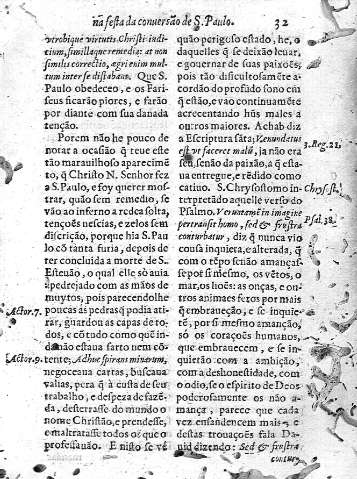 na festa da conversaõ de S. Paulo. 32
utrobique virtutis Christi indi-
tium, simillaque remedia: at non
similis correctio, agri enim mul-
tum inter se distabant. Que S.
Paulo obedeceo, e os Fari-
seus ficarão piores, e farão
por diante com sua danada
tenção.
Porem não he pouco de
notar a ocasião q̃ teve este
tão maravilhoso aparecimẽ
to, q̃ Christo N. Senhor fez
a S. Paulo, e foy querer mos-
trar, quão sem remedio, se
vão ao inferno a redea solta,
tenções nescias, e zelos sem
discrição, porque hia S. Pau-
lo cõ tanta furia, depois de
ter concluida a morte de S.
Estevão, o qual elle sò avia
apedrejado com as mãos de
muytos, pois parecendolhe
Actor.7. poucas as pedras q̃ podia ati-
rar, guardou as capas de to-
dos, e cõ tudo como quẽ in-
da não estava farto nem cõ-
Actor.9. tente; Adhuc spirans minarum,
negoceava cartas, buscava
valias, pera q̃ à custa de seu
trabalho, e despeza de fazẽ-
da, desterrasse do mundo o
nome Christão, e prendesse,
e maltratasse todos os que o
professavão. E nisto se vè
quão perigoso estado, he, o
daquelles q̃ se deixão levar,
e governar de suas paixões;
pois tão dificultosamẽte a-
cordão do profũdo sono em
q̃ estão, e vao continuamẽte
acrecentando hũs males a
outros maiores. Achab diz
a Escriptura sãta; Venundatus
est ut faceret malũ, ja não era 3.Reg.21.
seu, senão da paixão, a q̃ esta-
va entregue, e rẽdido como
cativo. S. Chrysostomo in- Chrysost.
terpretãdo aquelle verso do
Psalmo. Verũtamẽ in imagine Psal.38.
pertransit homo, sed & frustra
conturbatur, diz q̃ nunca vio
cousa inquieta, e alterada, q̃
com o tẽpo senão amanças-
se por si mesmo, os vẽtos, o
mar, os liões: as onças, e ou-
tros animaes feros por mais
q̃ embraveção, e se inquie-
tẽ, por si mesmo amanção,
só os corações humanos,
que embravecem, e se in-
quietão com a ambição,
com a deshonestidade, com
o odio, se o espirito de Deos
poderosamente os não a-
mança, parece que cada
vez ensandecem mais e
destas trovações fala Da-
vid dizendo: Sed & frustra
contur-